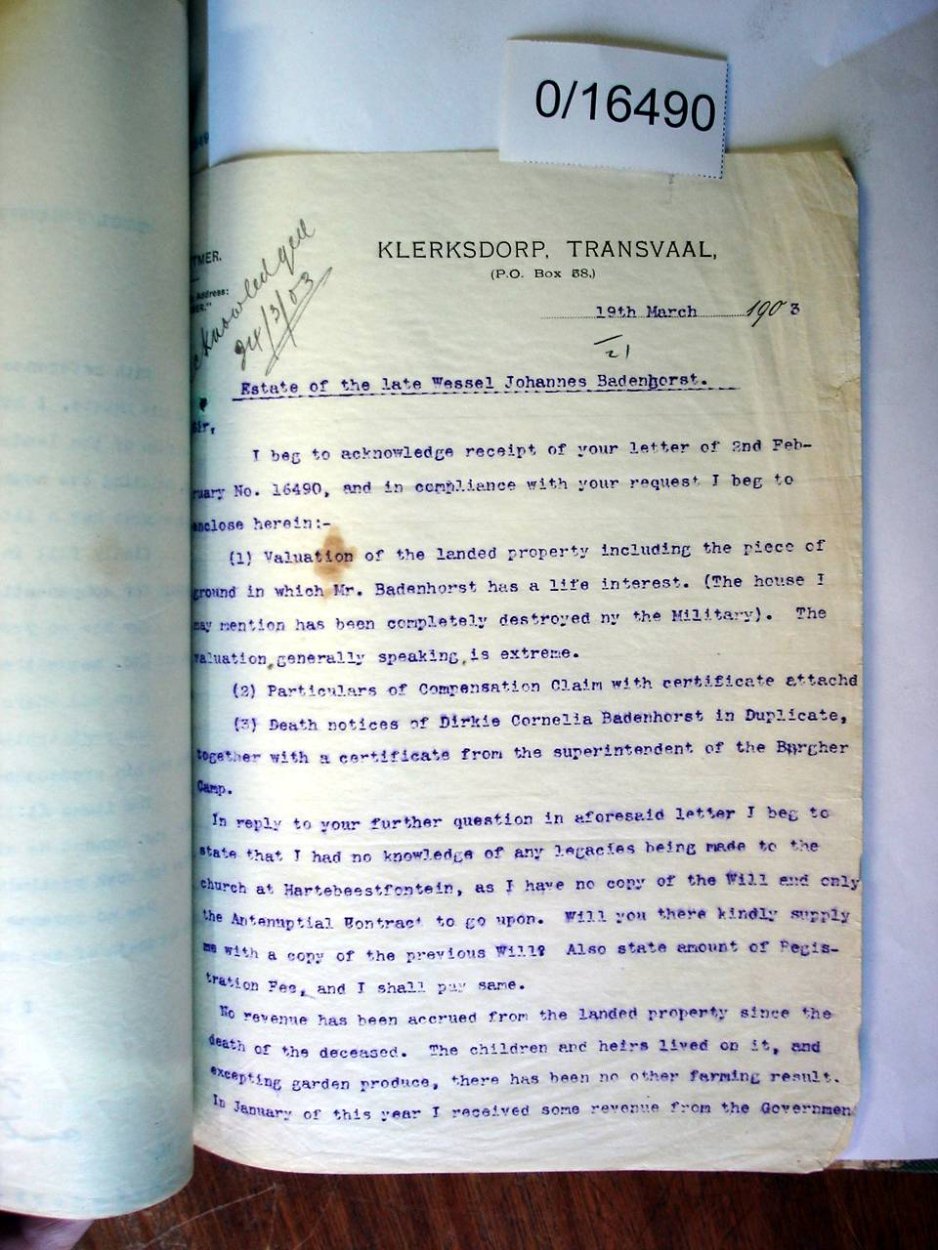 0/16490
TMER.
KLERKSDORP, TRANSVAAL,
(P.O. Box 58,)
Address:
19th March 1903
24/3/03
21
Estate of the late Wessel Johannes Badenhorst.
Sir,
I beg to acknowledge receipt of your letter of 2nd Feb-
ruary No. 16490, and in compliance with your request I beg to
enclose herein:-
(1) Valuation of the landed property including the piece of
ground in which Mr. Badenhorst has a life interest. (The house I
may mention has been completely destroyed ny the Military). The
valuation,generally speaking,is extreme.
(2) Particulars of Compensation Claim with certificate attachd
(3) Death notices of Dirkie Cornelia Badenhorst in Duplicate,
together with a certificate from the superintendent of the Burgher
Camp.
In reply to your further question in aforesaid letter I beg to
state that I had no knowledge of any legacies being made to the
church at Hartebeestfontein, as I have no copy of the Will and only
the Antenuptial Contract to go upon. Will you there kindly supply
me with a copy of the previous Will? Also state amount of Regis-
tration Fee, and I shall pay same.
No revenue has been accrued from the landed property since the
death of the deceased. The children and heirs lived on it, and
excepting garden produce, there has been no other farming result.
In January of this year I received some revenue from the Governmen